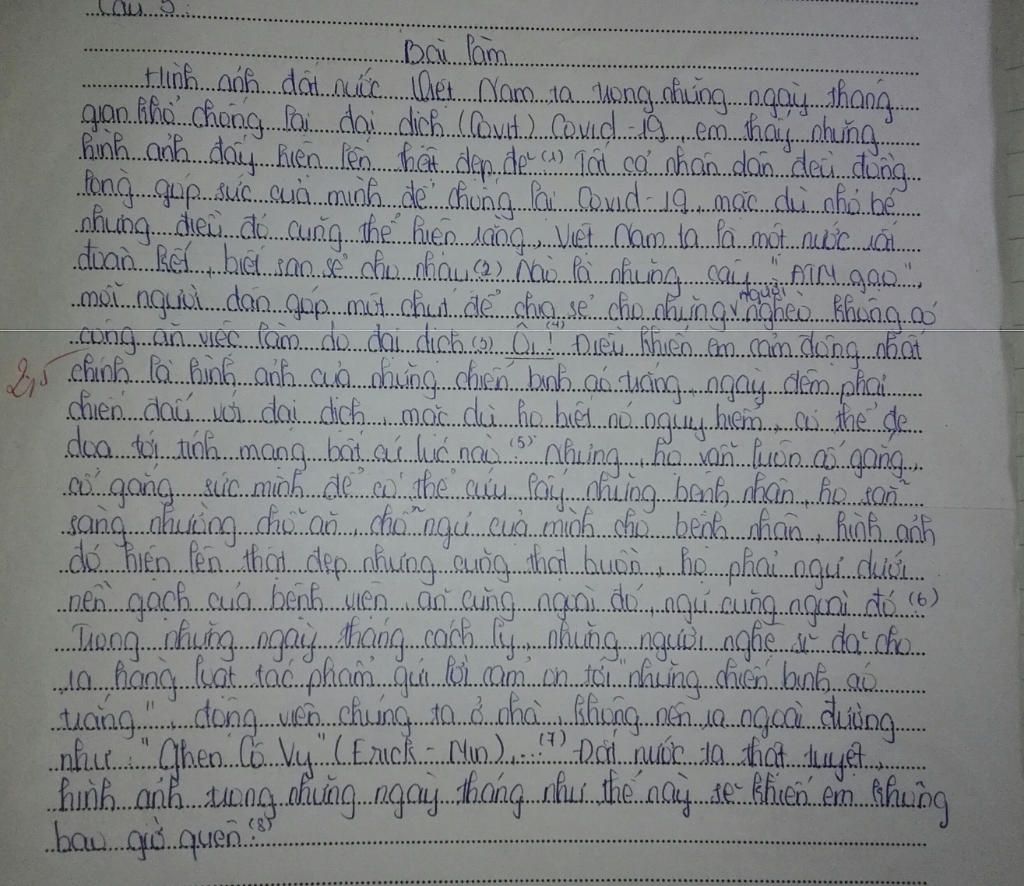 Câu 5:
Bài làm
Hình ảnh đất nước Việt Nam ta trong những ngày tháng
gian khổ chống lại đại dịch (Covit) Covid-19, em thấy những
hình ảnh đấy hiện lên thật đẹp đẽ (1) Tất cả nhân dân đều đồng
lòng góp sức của mình để chống lại Covid-19, mặc dù nhỏ bé
nhưng điều đó cũng thể hiện rằng, Việt Nam ta là một nước rất
đoàn kết, biết san sẻ cho nhau (2) Nào là những cây "ATM gạo",
mỗi người dân góp một chút để chia sẻ cho những người nghèo không có
công ăn việc làm do đại dịch (3) Ôi! (4) Điều khiến em cảm động nhất
2,5 chính là hình ảnh của những chiến binh áo trắng, ngày đêm phải
chiến đấu với đại dịch, mặc dù họ biết nó nguy hiểm, có thể đe
dọa tới tính mạng bất cứ lúc nào (5) Nhưng, họ vẫn luôn cố gắng,
cố gắng sức mình để có thể cứu lấy những bệnh nhân, họ sẵn
sàng nhường chỗ ăn, chỗ ngủ của mình cho bệnh nhân, hình ảnh
đó hiện lên thật đẹp nhưng cũng thật buồn, họ phải ngủ dưới
nền gạch của bệnh viện, ăn cũng ngoài đó, ngủ cũng ngoài đó (6)
Trong những ngày tháng cách ly, những người nghệ sĩ đã cho
ra hàng loạt tác phẩm gửi lời cảm ơn tới "những chiến binh áo
trắng", động viên chúng ta ở nhà, không nên ra ngoài đường
như: "Ghen Cô Vy" (Erick - Min),... (7) Đất nước ta thật tuyệt,
hình ảnh trong những ngày tháng như thế này sẽ khiến em không
bao giờ quên! (8)